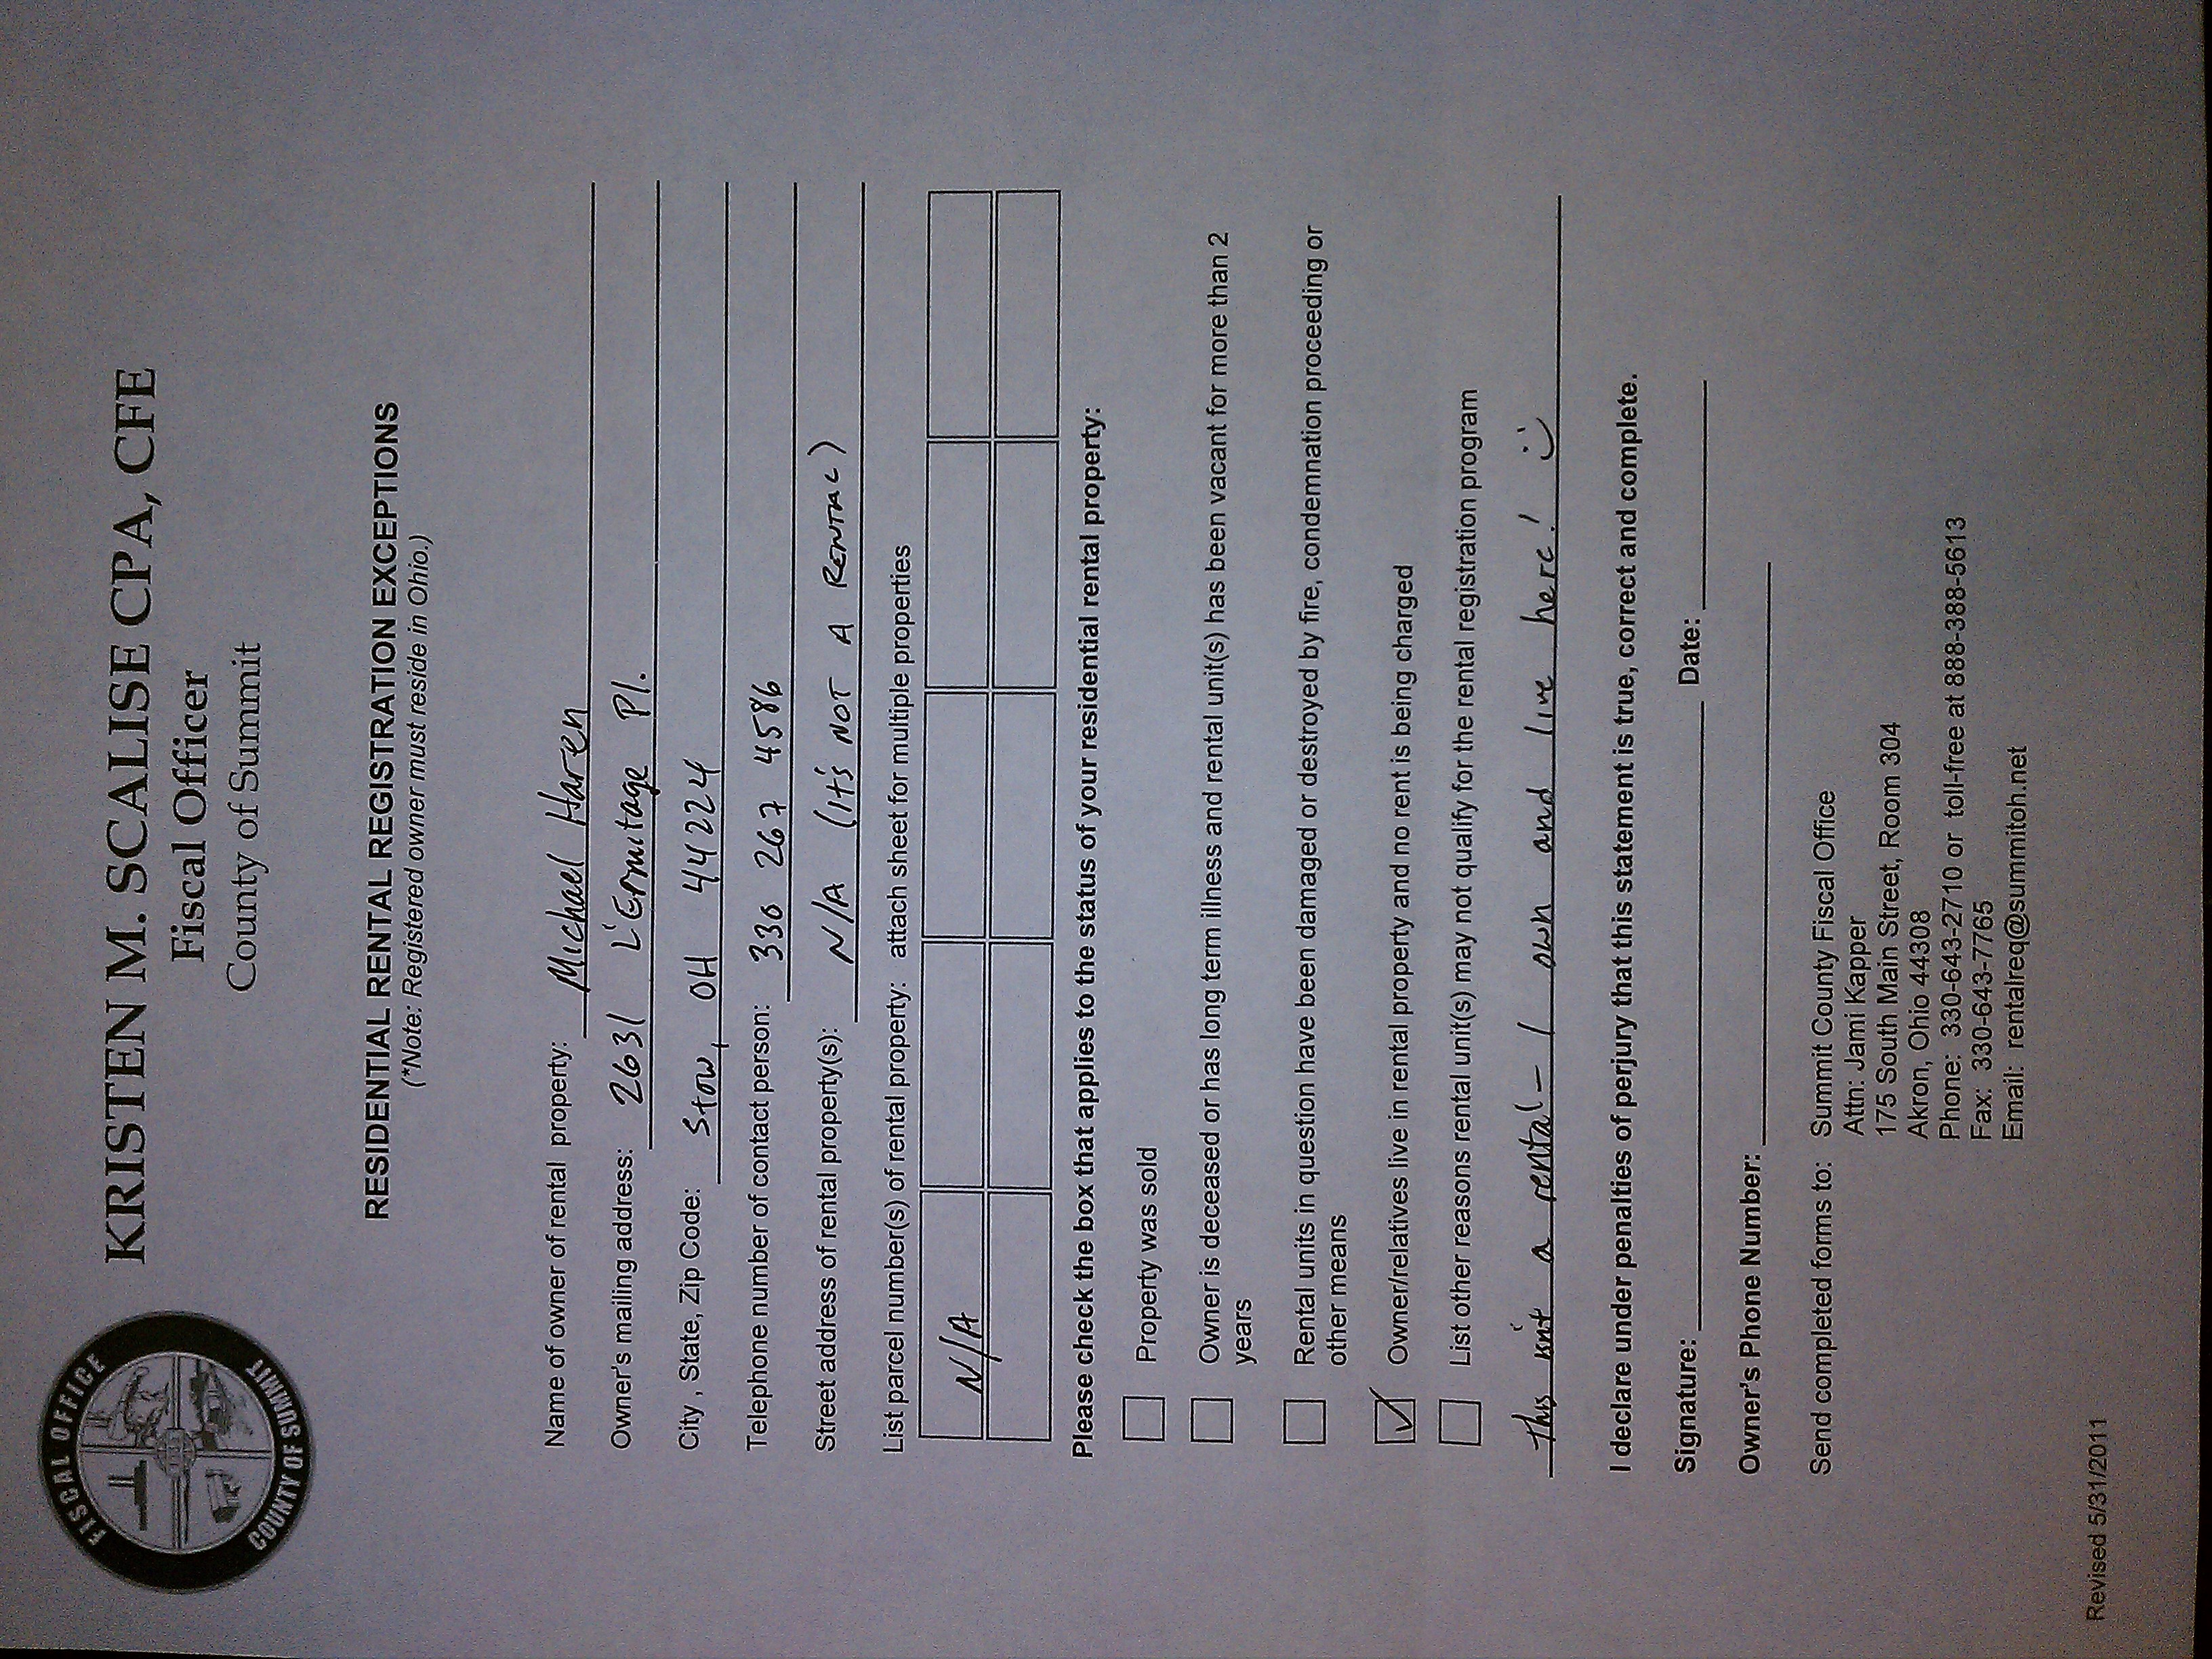 FISCAL OFFICE
COUNTY OF SUMMIT
KRISTEN M. SCALISE CPA, CFE
Fiscal Officer
County of Summit
RESIDENTIAL RENTAL REGISTRATION EXCEPTIONS
(*Note: Registered owner must reside in Ohio.)
Name of owner of rental property: Michael Haren
Owner's mailing address: 2631 L'Ermitage Pl.
City , State, Zip Code: Stow, OH 44224
Telephone number of contact person: 330 267 4586
Street address of rental property(s): N/A (It's NOT A RENTAL)
List parcel number(s) of rental property: attach sheet for multiple properties
N/A
Please check the box that applies to the status of your residential rental property:
Property was sold
Owner is deceased or has long term illness and rental unit(s) has been vacant for more than 2
years
Rental units in question have been damaged or destroyed by fire, condemnation proceeding or
other means
Owner/relatives live in rental property and no rent is being charged
List other reasons rental unit(s) may not qualify for the rental registration program
This isn't a rental - I own and live here! :)
I declare under penalties of perjury that this statement is true, correct and complete.
Signature: Date:
Owner's Phone Number:
Send completed forms to: Summit County Fiscal Office
Attn: Jami Kapper
175 South Main Street, Room 304
Akron, Ohio 44308
Phone: 330-643-2710 or toll-free at 888-388-5613
Fax: 330-643-7765
Email: rentalreq@summitoh.net
Revised 5/31/2011